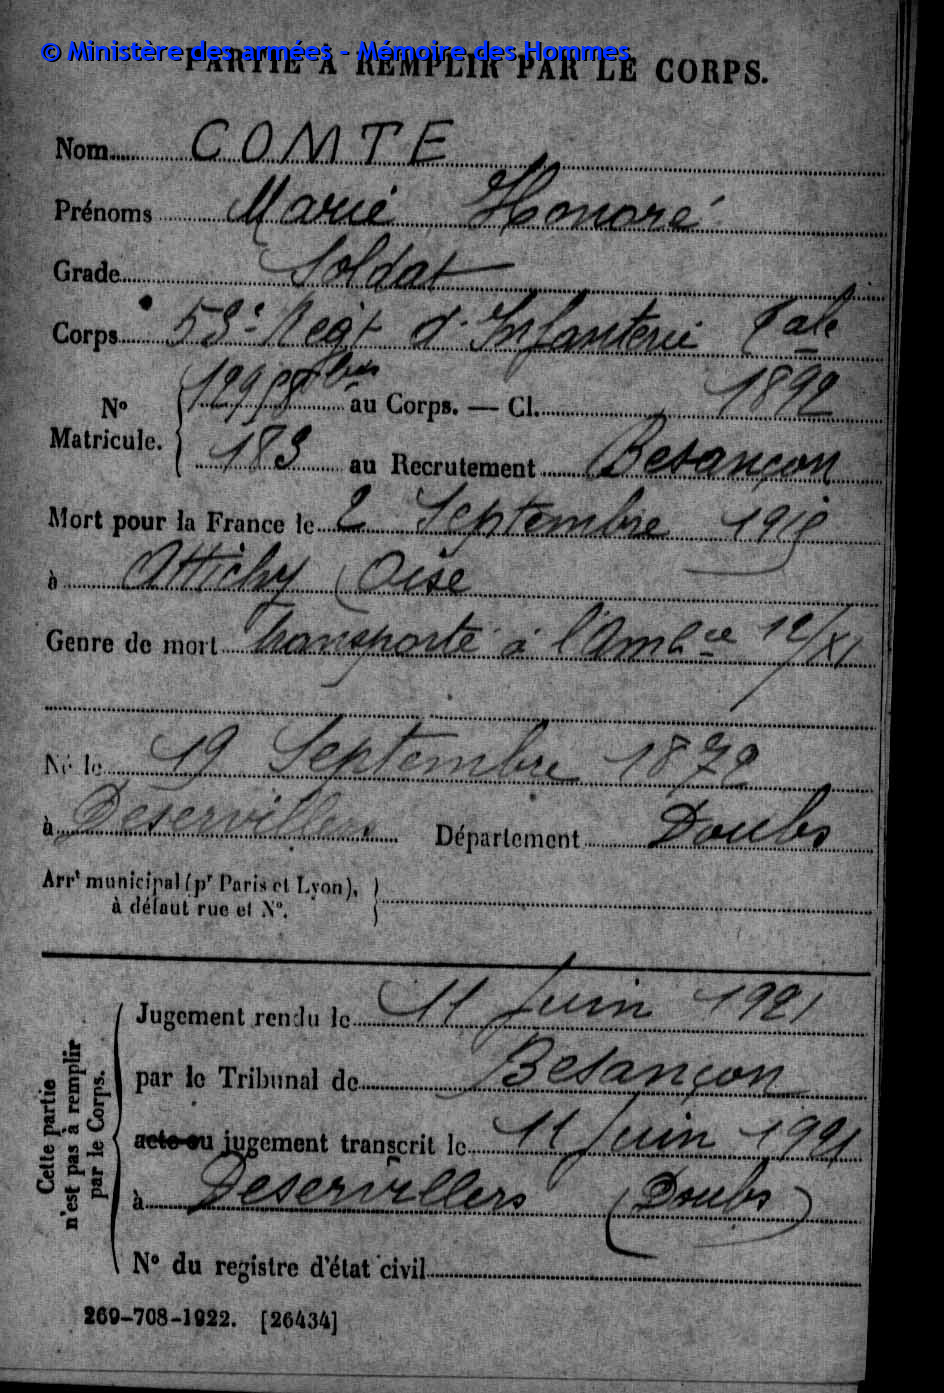 © Ministère des armées - Mémoire des Hommes
PARTIE A REMPLIR PAR LE CORPS.
Nom COMTE
Prénoms Marie Honoré
Grade Soldat
Corps 53e Regt d'Infanterie Tale
No Matricule. au Corps. — Cl. 1892
183 au Recrutement Besançon
Mort pour la France le 2 Septembre 1918
à Attichy (Oise
Genre de mort transporté à l'Ambce 12/XI
Né le 19 Septembre 1872
à Deservillers Département Doubs
Arrt municipal (pr Paris et Lyon),
à défaut rue et No.
Cette partie
n'est pas à remplir
par le Corps.
Jugement rendu le 11 Juin 1921
par le Tribunal de Besançon
acte ou jugement transcrit le 11 Juin 1921
à Deservillers (Doubs)
No du registre d'état civil
269-708-1922. [26434]